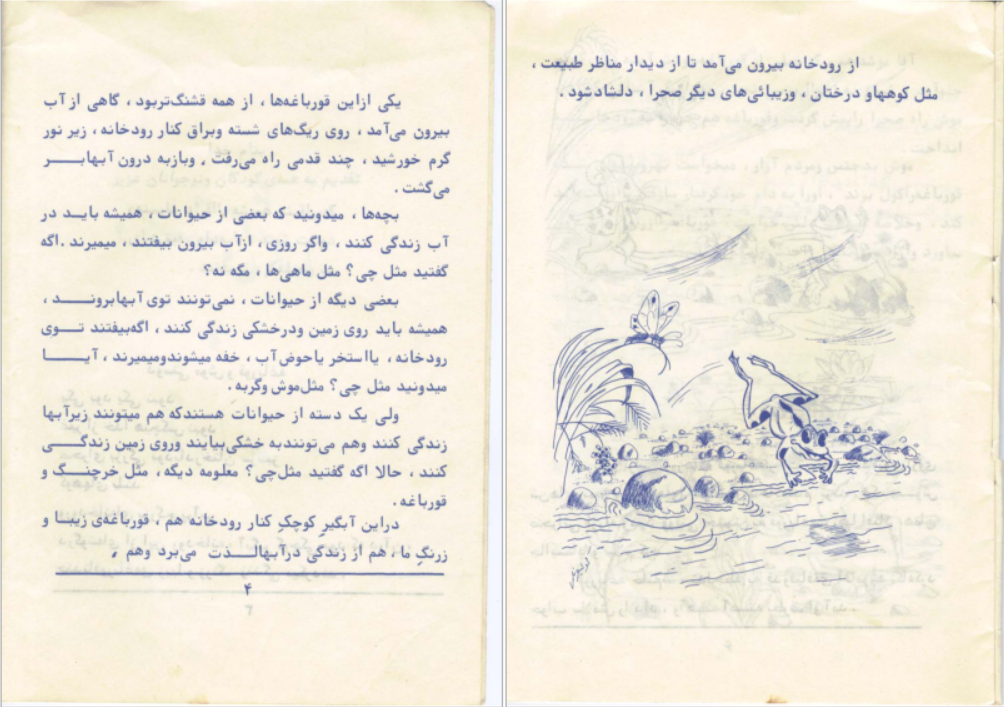 یکی ازاین قورباغه‌ها ، از همه قشنگ‌تربود ، گاهی از آب
بیرون می‌آمد ، روی ریگ‌های شسته وبراق کنار رودخانه ، زیر نور
گرم خورشید ، چند قدمی راه می‌رفت ، وبازبه درون آبهابـــر
می‌گشت .
بچه‌ها ، میدونید که بعضی از حیوانات ، همیشه بایـد در
آب زندگی کنند ، واگر روزی ، ازآب بیرون بیفتند ، میمیرند .اگه
گفتید مثل چی؟ مثل ماهی‌ها ، مگه نه؟
بعضی دیگه از حیوانات ، نمی‌تونند توی آبهابرونـــد ،
همیشه باید روی زمین ودرخشکی زندگی کنند ، اگه‌بیفتند تـــوی
رودخانه ، یااستخر یاحوض‌آب ، خفه میشوندومیمیرند ، آیـــا
میدونید مثل چی؟ مثل‌موش وگربه .
ولی یک دسته از حیوانات هستندکه هم میتونند زیرآبها
زندگی کنند وهم می‌تونندبه خشکی‌بیایند وروی زمین زندگـــی
کنند ، حالا اگه گفتید مثل‌چی؟ معلومه دیگه ، مثل خرچنـگ و
قورباغه .
دراین آبگیر کوچکِ کنار رودخانه هم ، قورباغه‌ی زیبـا و
زرنگِ ما ، هم از زندگی درآبهالـــذت می‌برد وهم ،
۴
از رودخانه بیرون می‌آمد تا از دیدار مناظر طبیعت ،
مثل کوههاو درختان ، وزیبائی‌های دیگر صحرا ، دلشادشود .